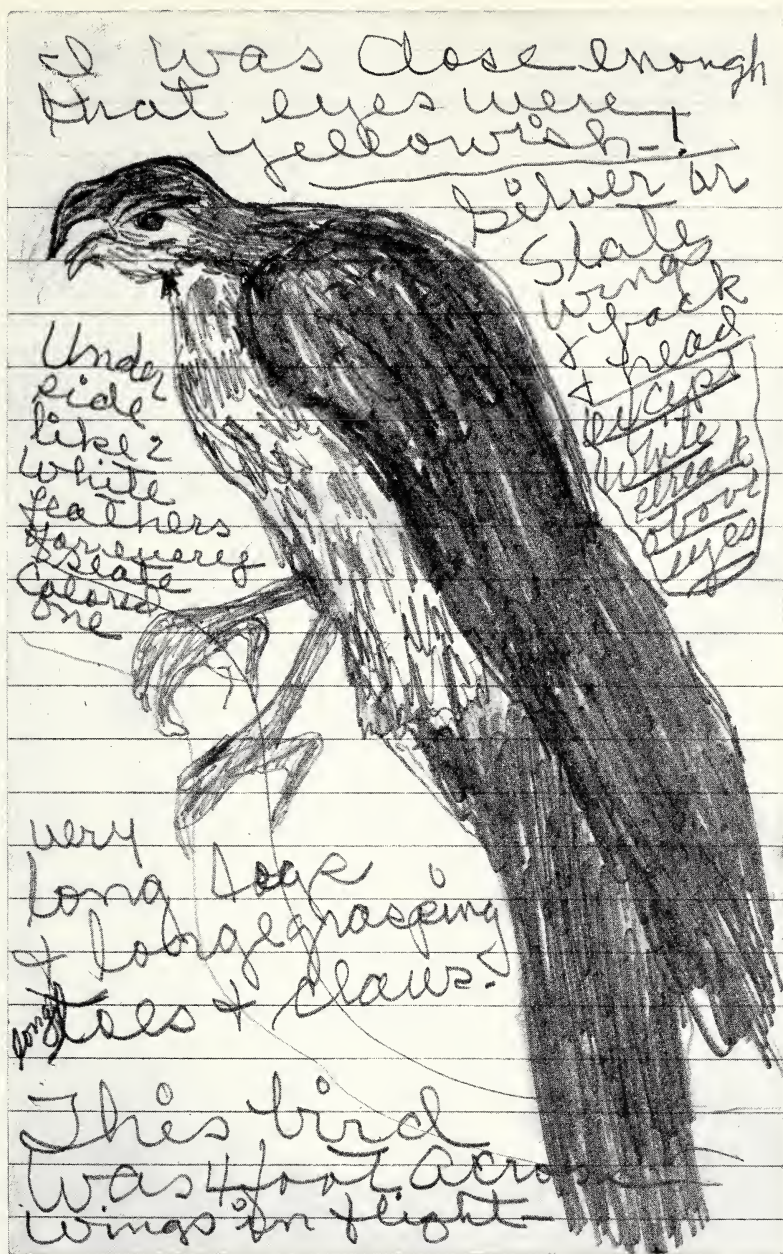 I was close enough
that eyes were
yellowish-!
Silver or
Slate
wings
& back
& head
except
white
streak
above
eyes
Under
side
like 2
white
feathers
for every
slate
colored
one
very
long legs
& large grasping
long toes & claws.
This bird
was 4 foot across
wings in flight